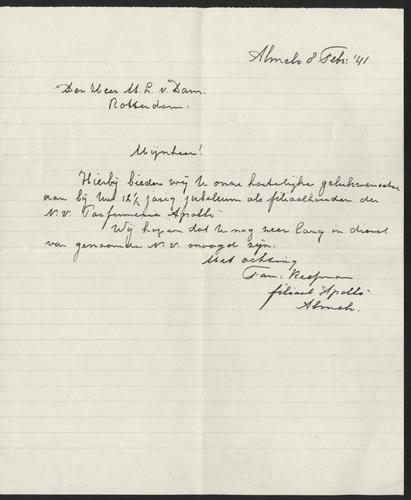 Almelo 8 Febr. '41
Den Heer M. L. v. Dam.
Rotterdam.
Mijnheer!
Hierbij bieden wij U onze hartelijke gelukwenschen
aan bij Uw 12½ jarig jubileum als filiaalhouder der
N.V. Parfumerie Apollo.
Wij hopen dat U nog zeer lang in dienst
van genoemde N.V. moogt zijn.
Met achting
Fam. Koopman
filiaal Apollo
Almelo.